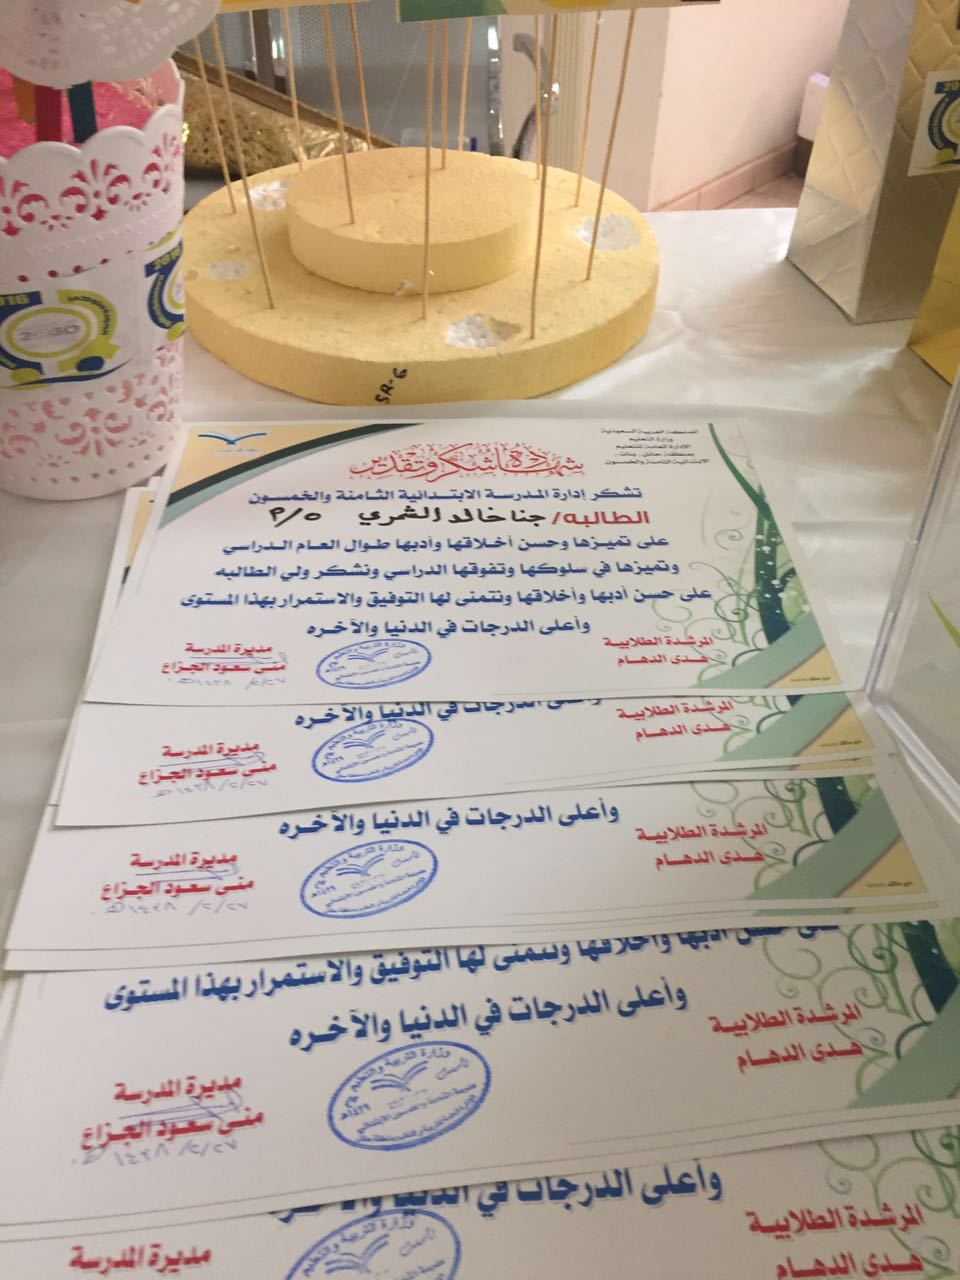 2016
2030
SR-6
المملكة العربية السعودية
وزارة التعليم
الادارة العامة للتعليم
بمنطقة حائل ، بنات ،
الابتدائية الثامنة والخمسون
شهادة شكر وتقدير
تشكر إدارة المدرسة الابتدائية الثامنة والخمسون
الطالبه/ جنا خالد الشمري ٥/م
على تميزها وحسن أخلاقها وأدبها طوال العام الدراسي
وتميزها في سلوكها وتفوقها الدراسي ونشكر ولي الطالبه
على حسن أدبها وأخلاقها ونتمنى لها التوفيق والاستمرار بهذا المستوى
وأعلى الدرجات في الدنيا والآخره
المرشدة الطلابية
هدى الدهام
مديرة المدرسة
منى سعود الجزاع
١٤٣٨/٢/٢٧هـ
وأعلى الدرجات في الدنيا والآخره
المرشدة الطلابية
هدى الدهام
مديرة المدرسة
منى سعود الجزاع
١٤٣٨/٢/٢٧هـ
وأعلى الدرجات في الدنيا والآخره
المرشدة الطلابية
هدى الدهام
مديرة المدرسة
منى سعود الجزاع
١٤٣٨/٢/٢٧هـ
على حسن أدبها وأخلاقها ونتمنى لها التوفيق والاستمرار بهذا المستوى
وأعلى الدرجات في الدنيا والآخره
المرشدة الطلابية
هدى الدهام
وزارة التربية والتعليم
مديرة المدرسة
منى سعود الجزاع
١٤٣٨/٢/٢٧هـ
وأعلى الدرجات في الدنيا والآخره
المرشدة الطلابية
هدى الدهام
مديرة المدرسة